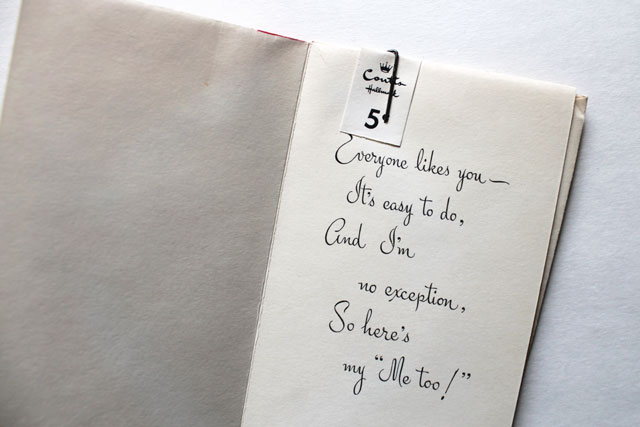 Coutts
Hallmark
5¢
Everyone likes you—
It's easy to do,
And I'm
no exception,
So here's
my “Me too!”